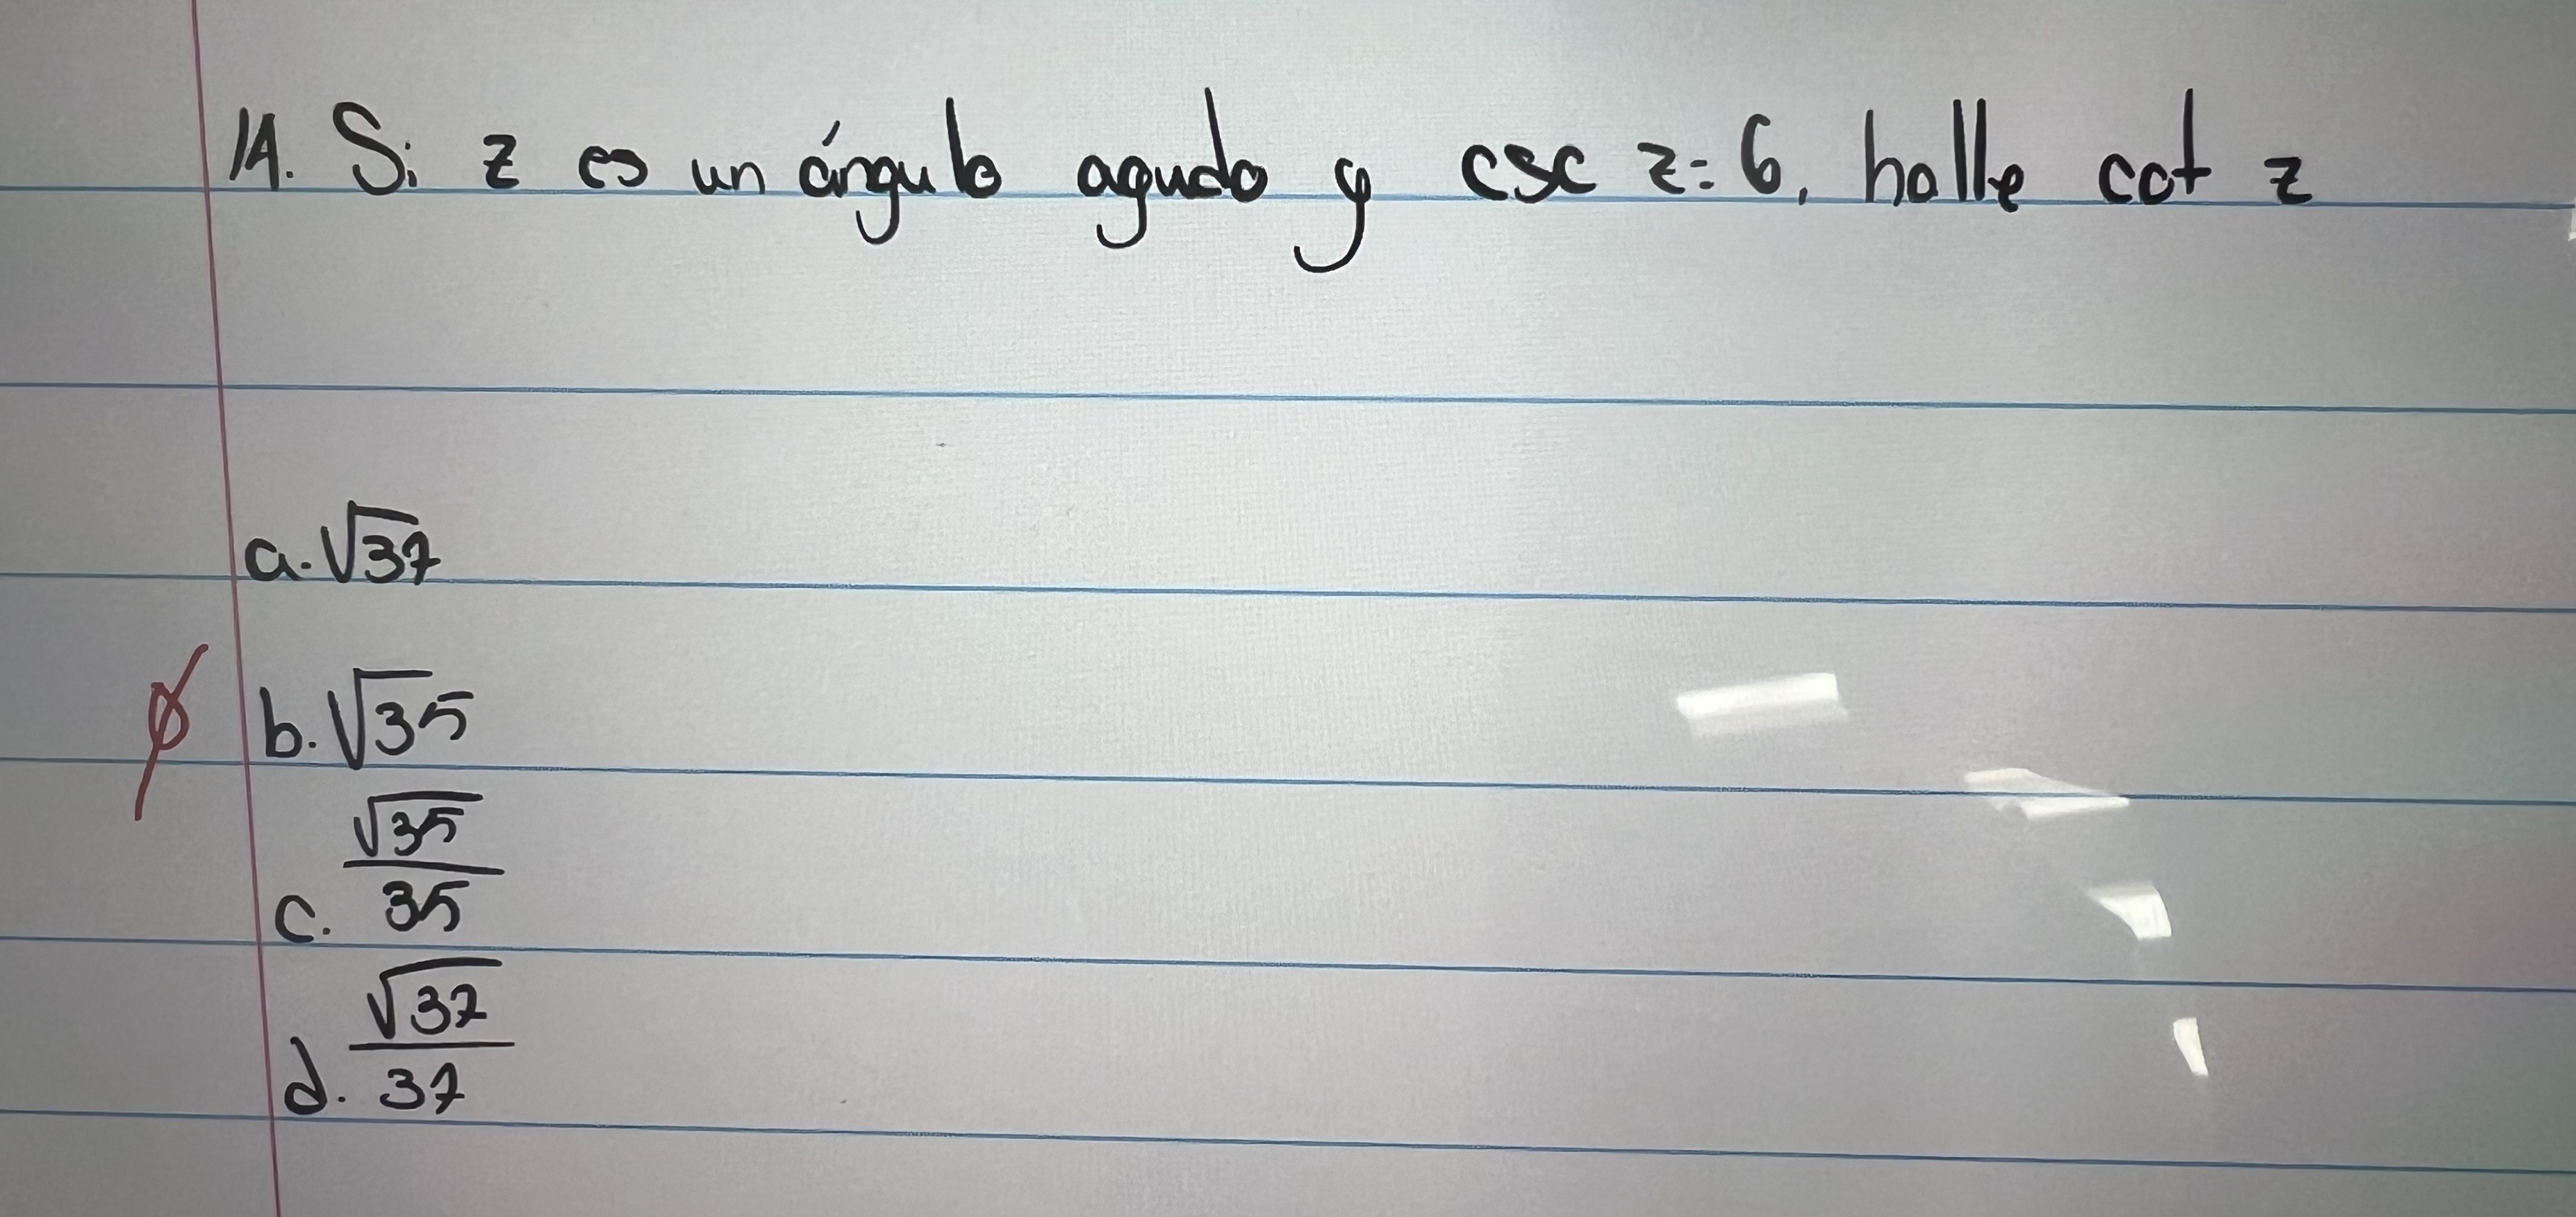 14. Si z es un ángulo agudo y csc z = 6, halle cot z
a. √37
b. √35
c. √35/35
d. √37/37